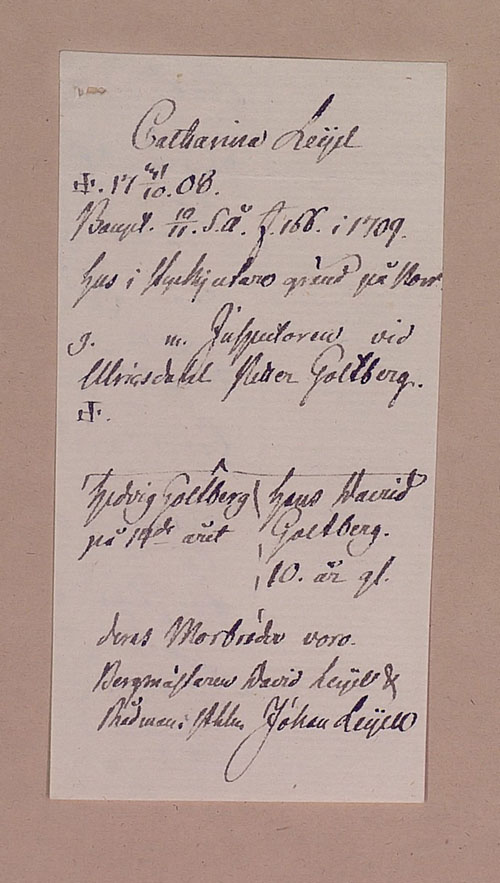 Catharina Leijel
17 10. 08.
Boupt. 10/11. s. å. f. 166. i 1709.
hus i gränd på Norr
g. m. Inspectoren vid
Ulricsdahl Petter Goltberg.
Hedvig Goltberg
på 14de året
Hans David
Goltberg.
10. år gl.
deras Morbröder voro
Bergmästaren David Leijel &
Rådman i Sthlm Johan Leijel